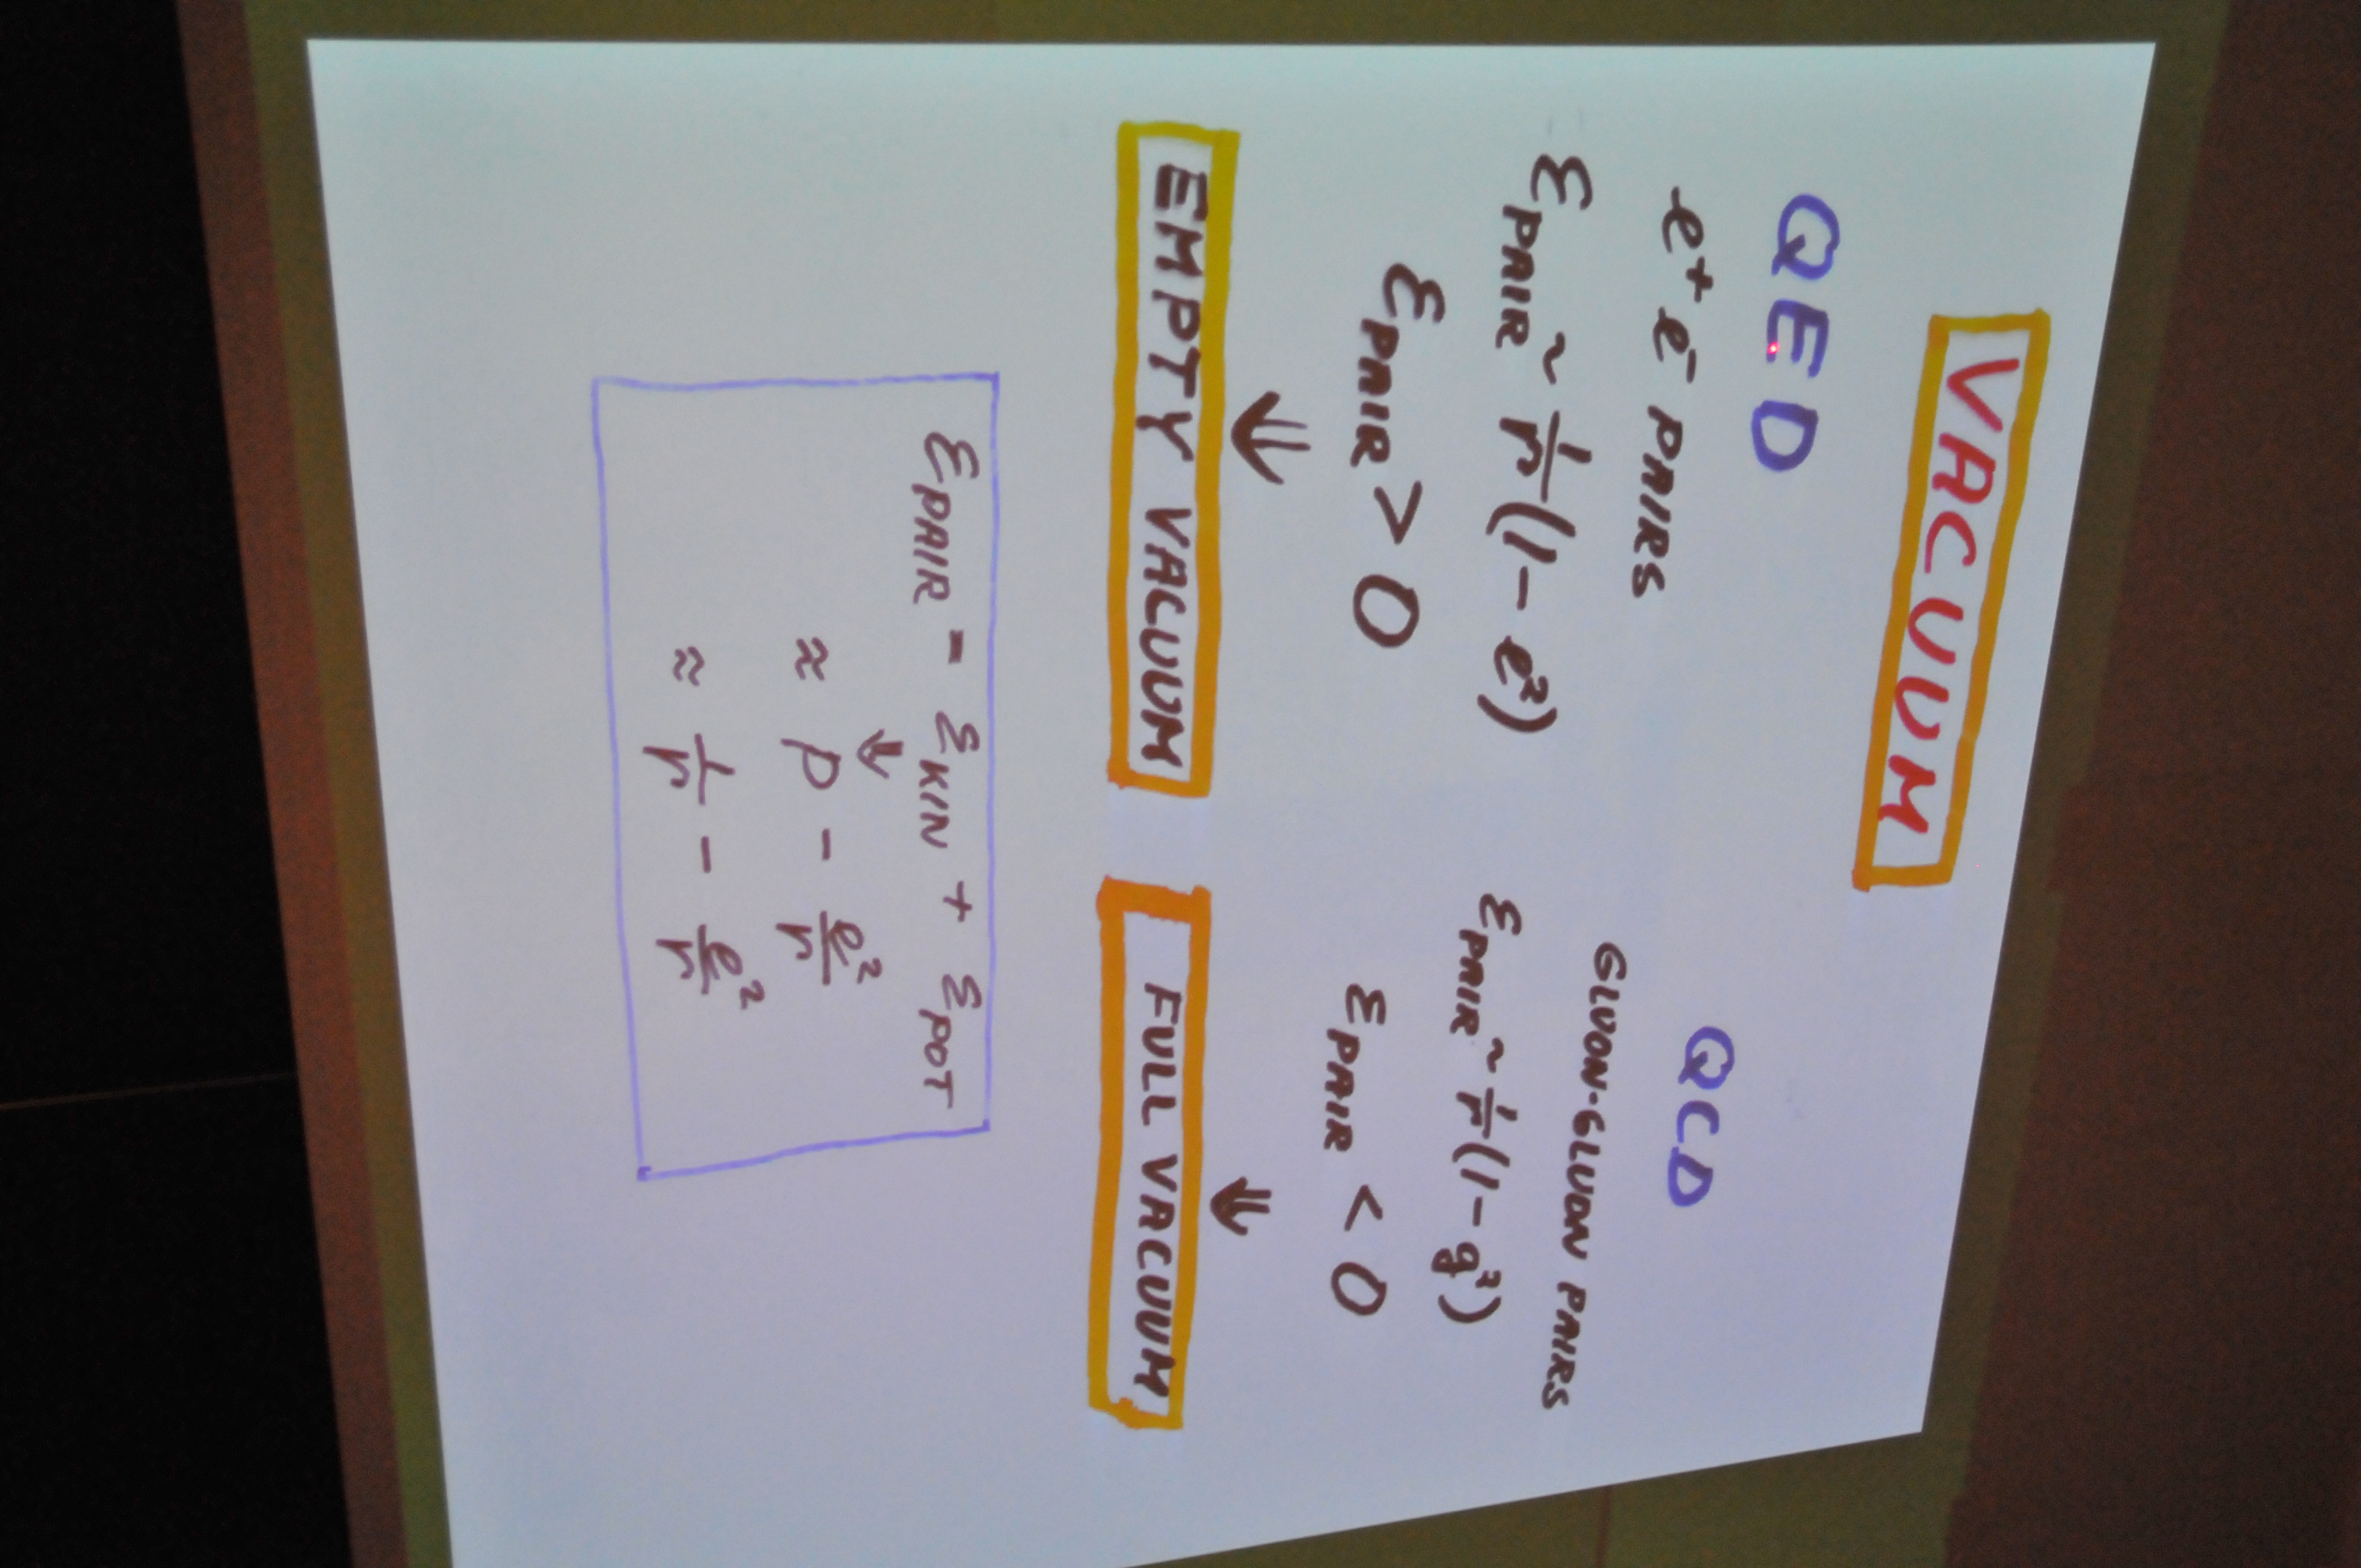 VACUUM
QED
e⁺e⁻ PAIRS
ℰPAIR ~ 1/r (1 - e²)
ℰPAIR > 0
⇓
EMPTY VACUUM
QCD
GLUON-GLUON PAIRS
ℰPAIR ~ 1/r (1 - g²)
ℰPAIR < 0
⇓
FULL VACUUM
ℰPAIR = ℰKIN + ℰPOT
⇓
≈ p - e²/r
≈ 1/r - e²/r